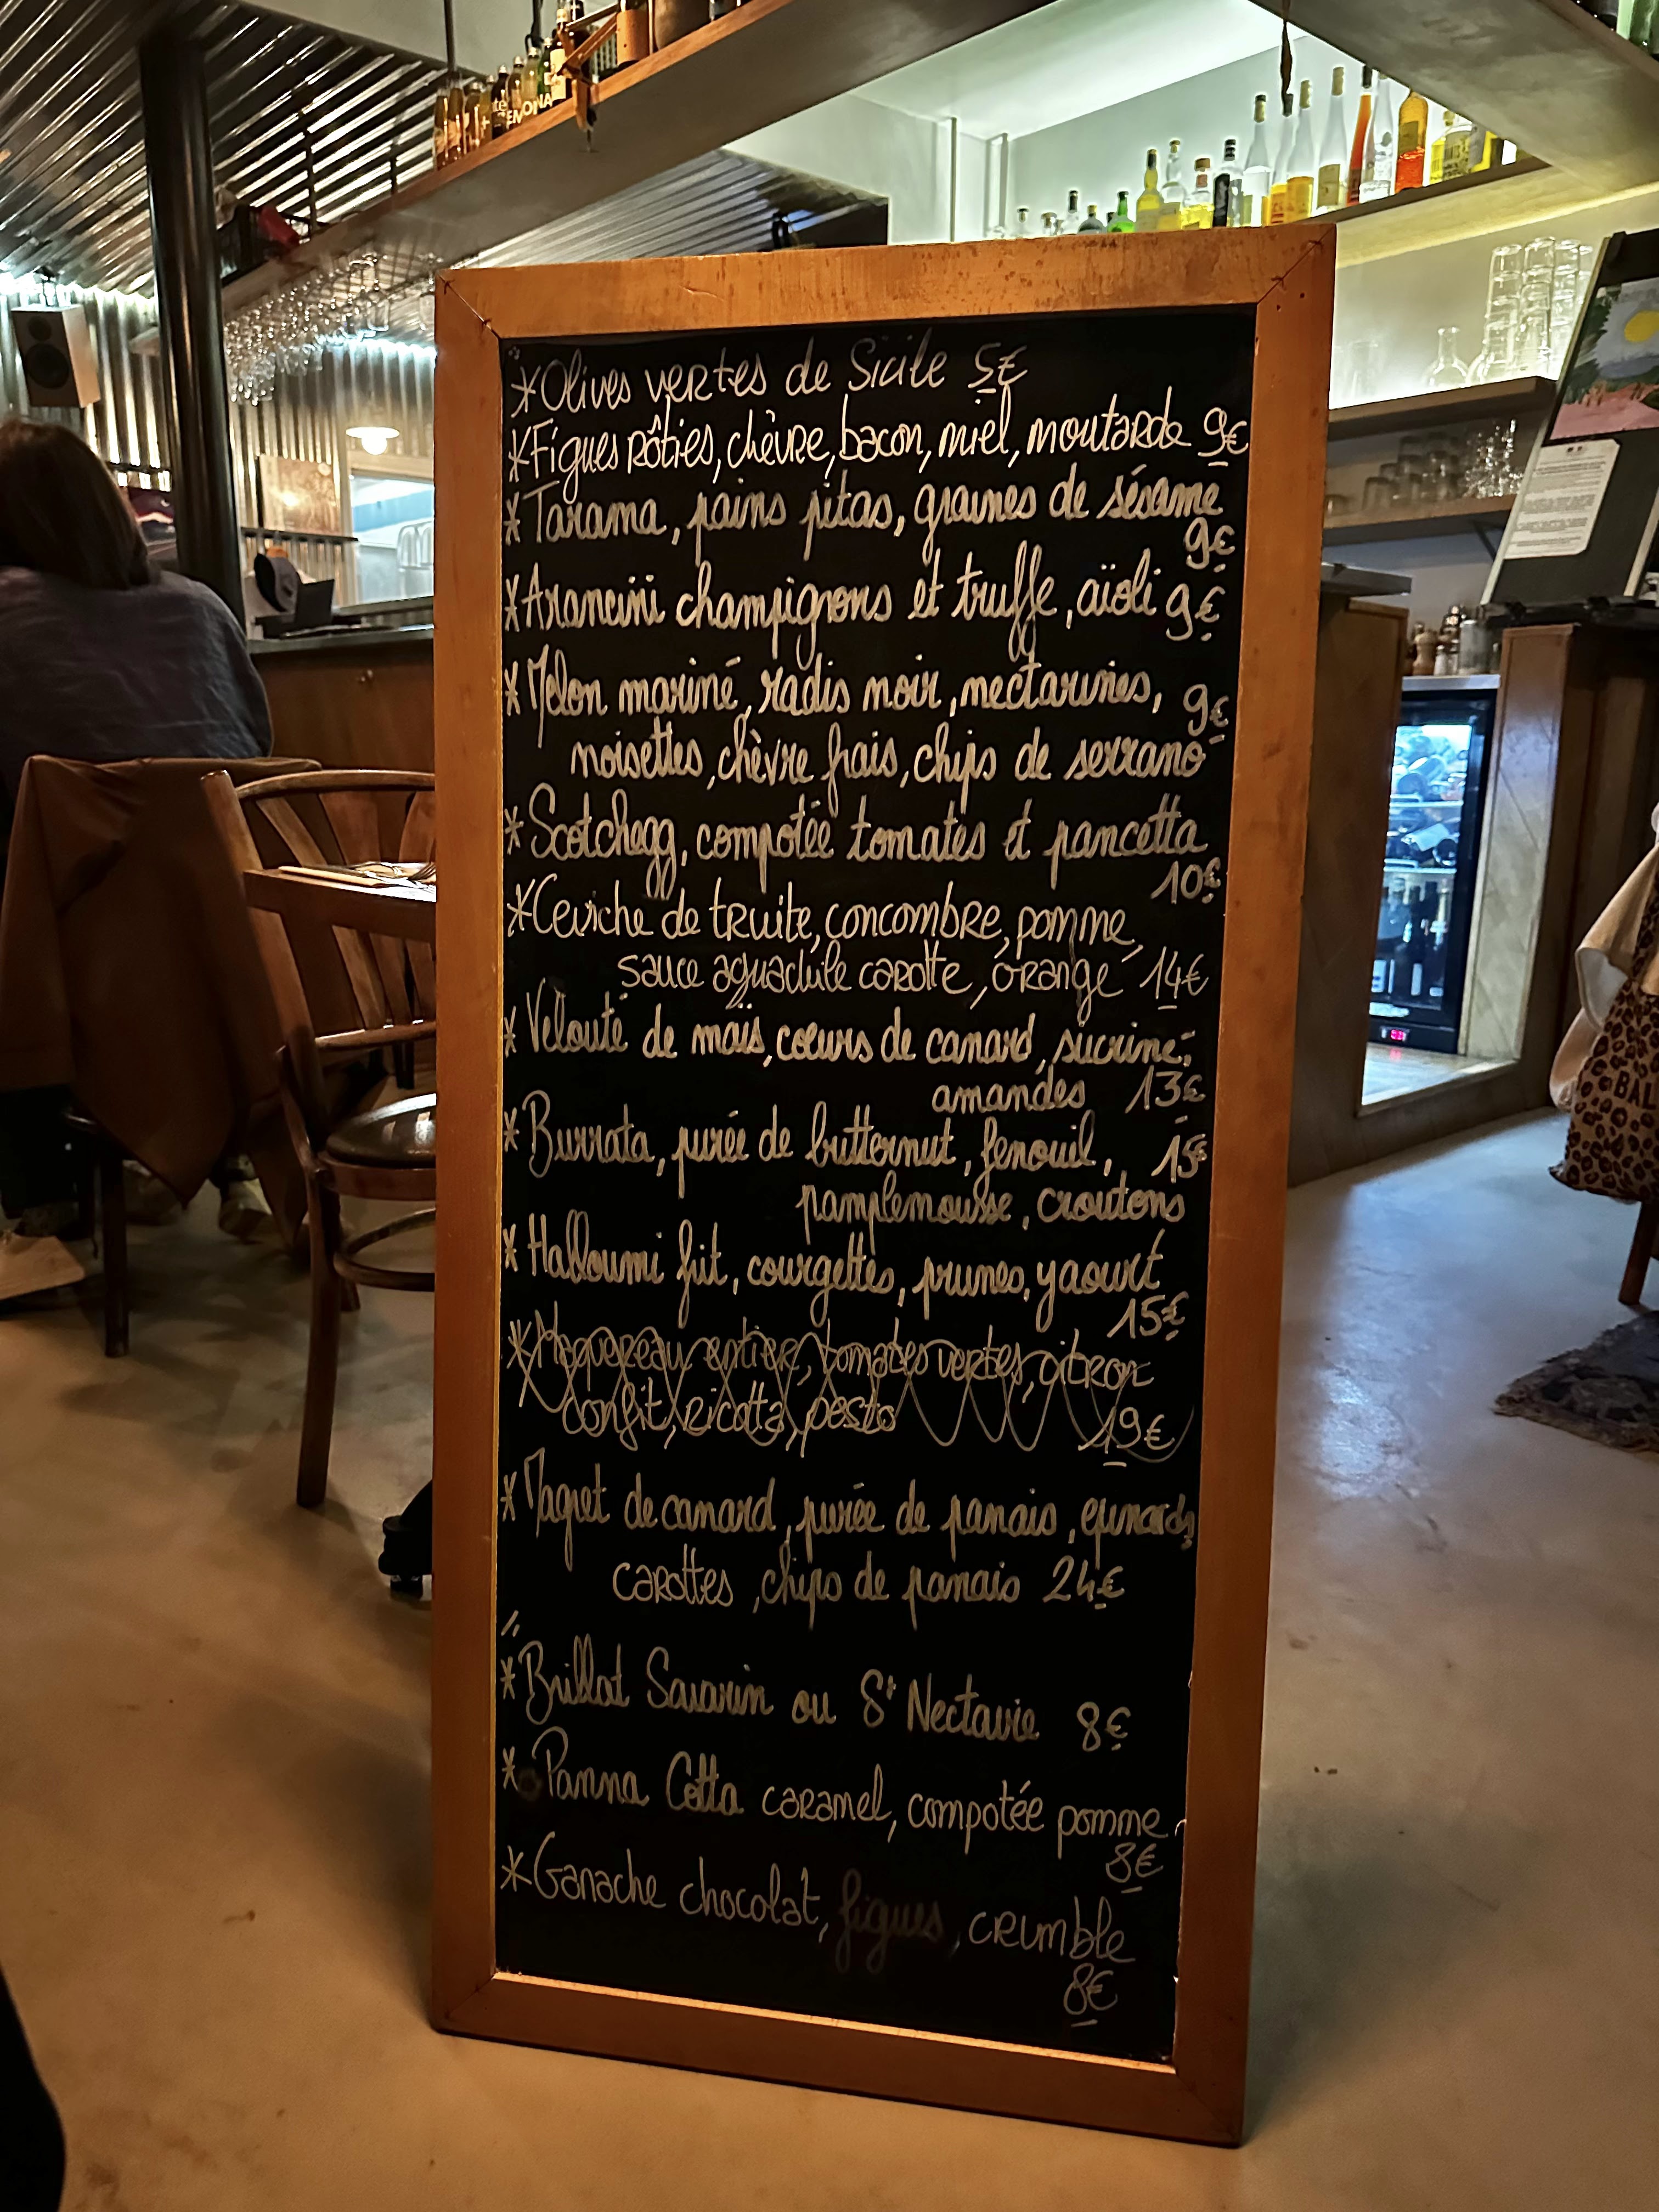 EMONA
*Olives vertes de Sicile 5€
*Figues rôties, chèvre, bacon, miel, moutarde 9€
*Tarama, pains pitas, graines de sésame
9€
*Arancini champignons et truffe, aïoli 9€
*Melon mariné, radis noir, nectarines, 9€
noisettes, chèvre frais, chips de serrano
*Scotchegg, compotée tomates et pancetta
10€
*Ceviche de truite, concombre, pomme,
sauce aguachile carotte, orange 14€
*Velouté de maïs, cœurs de canard, sucrine,
amandes 13€
*Burrata, purée de butternut, fenouil, 15€
pamplemousse, croutons
*Halloumi frit, courgettes, prunes, yaourt
15€
*Maquereau entier, tomates vertes, citron
confit, ricotta, pesto 19€
*Magret de canard, purée de panais, épinards,
carottes, chips de panais 24€
*Brillat Savarin ou St Nectaire 8€
*Panna Cotta caramel, compotée pomme
8€
*Ganache chocolat, figues, crumble
8€
BAL